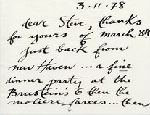 3-11-78
dear Steve, thanks
for yours of march 8th
just back from
new Haven -- a fine
dinner party at the
& then the